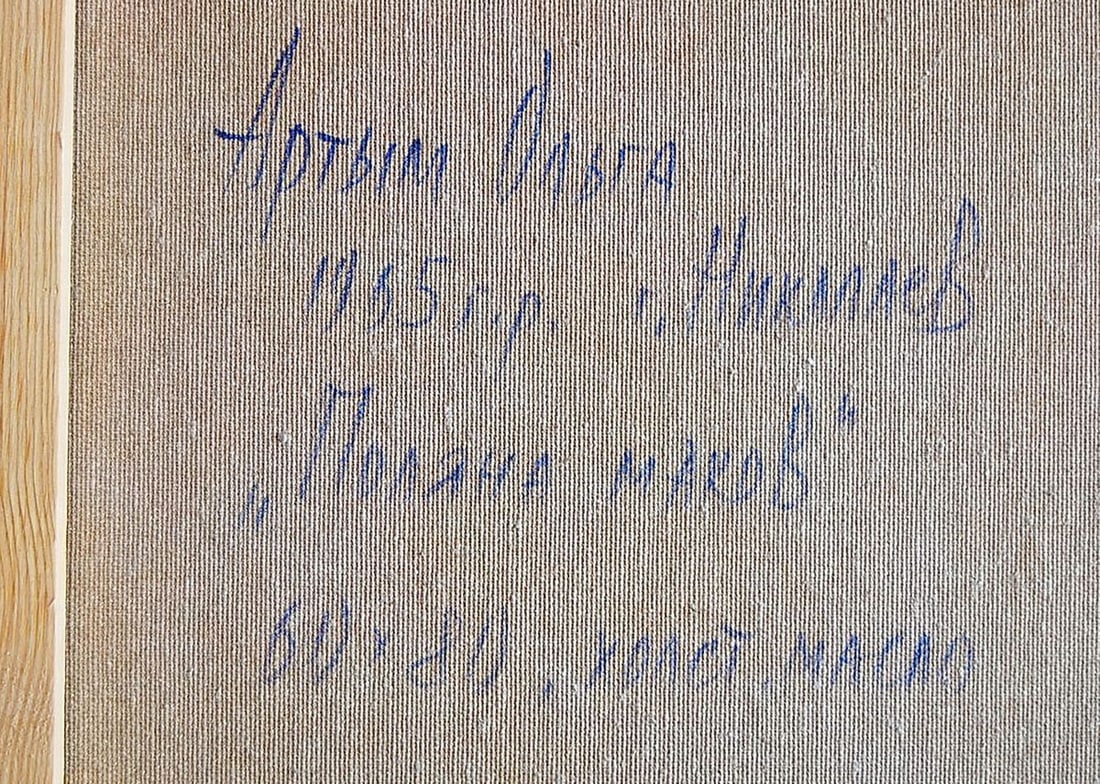 Артым Ольга
1965 г.р. г. Николаев
„Поляна маков"
60 x 80, холст, масло